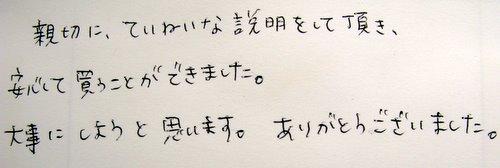 親切に、ていねいな説明をして頂き、
安心して買うことができました。
大事にしようと思います。ありがとうございました。